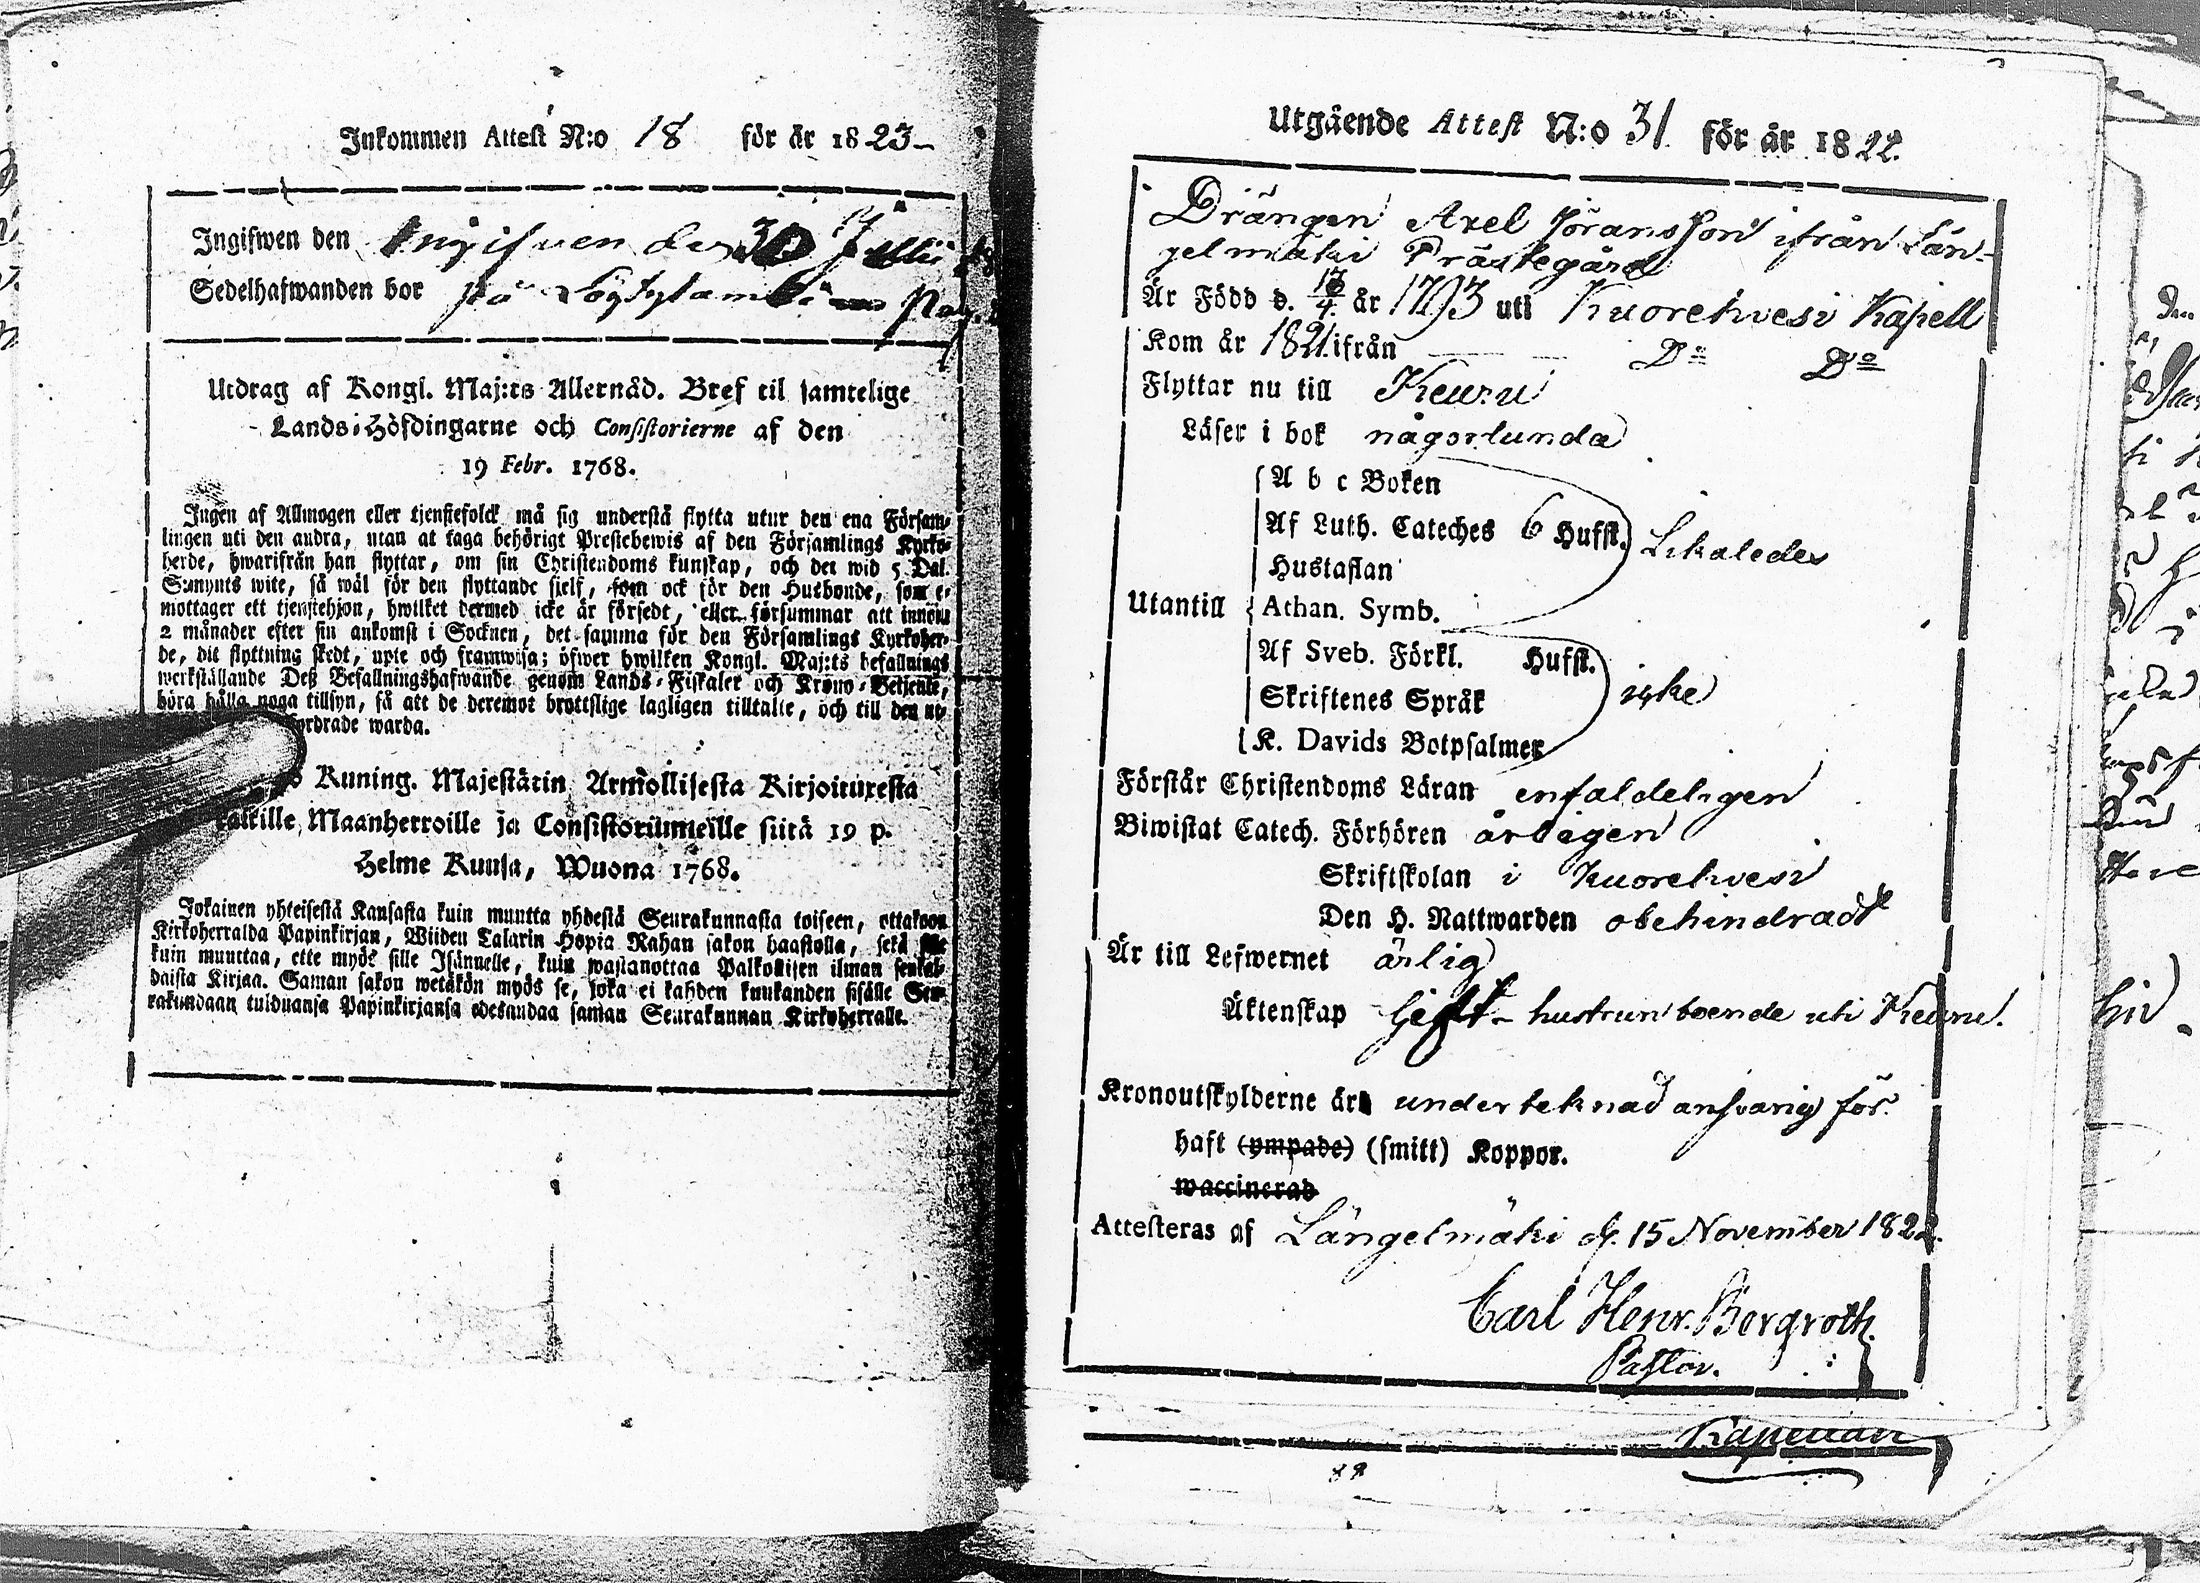 Inkommen Attest N:o 18 för år 1823
Ingifwen den Ingifven den 30 Julii
Sedelhafwanden bor på
Utdrag af Kongl. Maj:ts Allernåd. Bref til samtelige
Lands-Höfdingarne och Consistorierne af den
19 Febr. 1768.
Ingen af Allmogen eller tjenstefolck må sig understå flytta utur den ena Försam-
lingen uti den andra, utan at taga behörigt Prestebewis af den Församlings Kyrko-
herde, hwarifrån han flyttar, om sin Christendoms kunskap, och det wid 5 Dal.
S:mynts wite, så wäl för den flyttande sielf, som ock för den Husbonde, som e-
mottager ett tjenstehjon, hwilket dermed icke är försedt, eller försummar att innom
2 månader efter sin ankomst i Socknen, det samma för den Församlings Kyrkoher-
de, dit flyttning skedt, upte och framwisa; öfwer hwilken Kongl. Maj:ts befallnings
werkställande Deß Befallningshafwande genom Lands-Fiskaler och Krono-Betjente,
böra hålla noga tillsyn, få att de deremot brottslige lagligen tilltalte, och till den
fordrade warda.
Kuning. Majestätin Armollisesta Kirjoituxesta
kaikille Maanherroille ja Consistoriumeille siitä 19 p.
Helme Kuusa, Wuona 1768.
Jokainen yhteisestä Kansasta kuin muutta yhdestä Seurakunnasta toiseen, ottakoon
Kirkoherralda Papinkirjan, Wiiden Talarin Hopia Rahan sakon haastolla, sekä se
kuin muuttaa, ette myös sille Isännelle, kuin wastanottaa Palkollisen ilman senkal-
daista Kirjaa. Saman sakon wetäkön myös se, joka ei kahden kuukauden sisälle Seu-
rakundaan tulduansa Papinkirjansa edesandaa saman Seurakunnan Kirkoherralle.
Utgående Attest N:o 31 för år 1822.
Drängen Axel Jöransson ifrån Län-
gelmäki Prästegård
Är Född d. 13/4 år 1793 uti Kuorehvesi Kapell
Kom år 1821 ifrån D:o D:o
Flyttar nu till Keuru
Läser i bok någorlunda
A b c Boken
Af Luth. Cateches 6 Hufst. Likaledes
Hustaflan
Utantill Athan. Symb.
Af Sveb. Förkl. Hufst.
Skriftenes Språk icke
K. Davids Botpsalmer
Förstår Christendoms Läran enfaldeligen
Biwistat Catech. Förhören årligen
Skriftskolan i Kuorehvesi
Den H. Nattwarden obehindradt
Är till Lefwernet ärlig
Äktenskap Gift - hustrun boende uti Keuru.
Kronoutskylderne är undertecknad ansvarig för.
haft (ympade) (smitt) Koppor.
waccinerad
Attesteras af Längelmäki d. 15 November 1822.
Carl Henr. Bergroth.
Pastor.
Kapellan